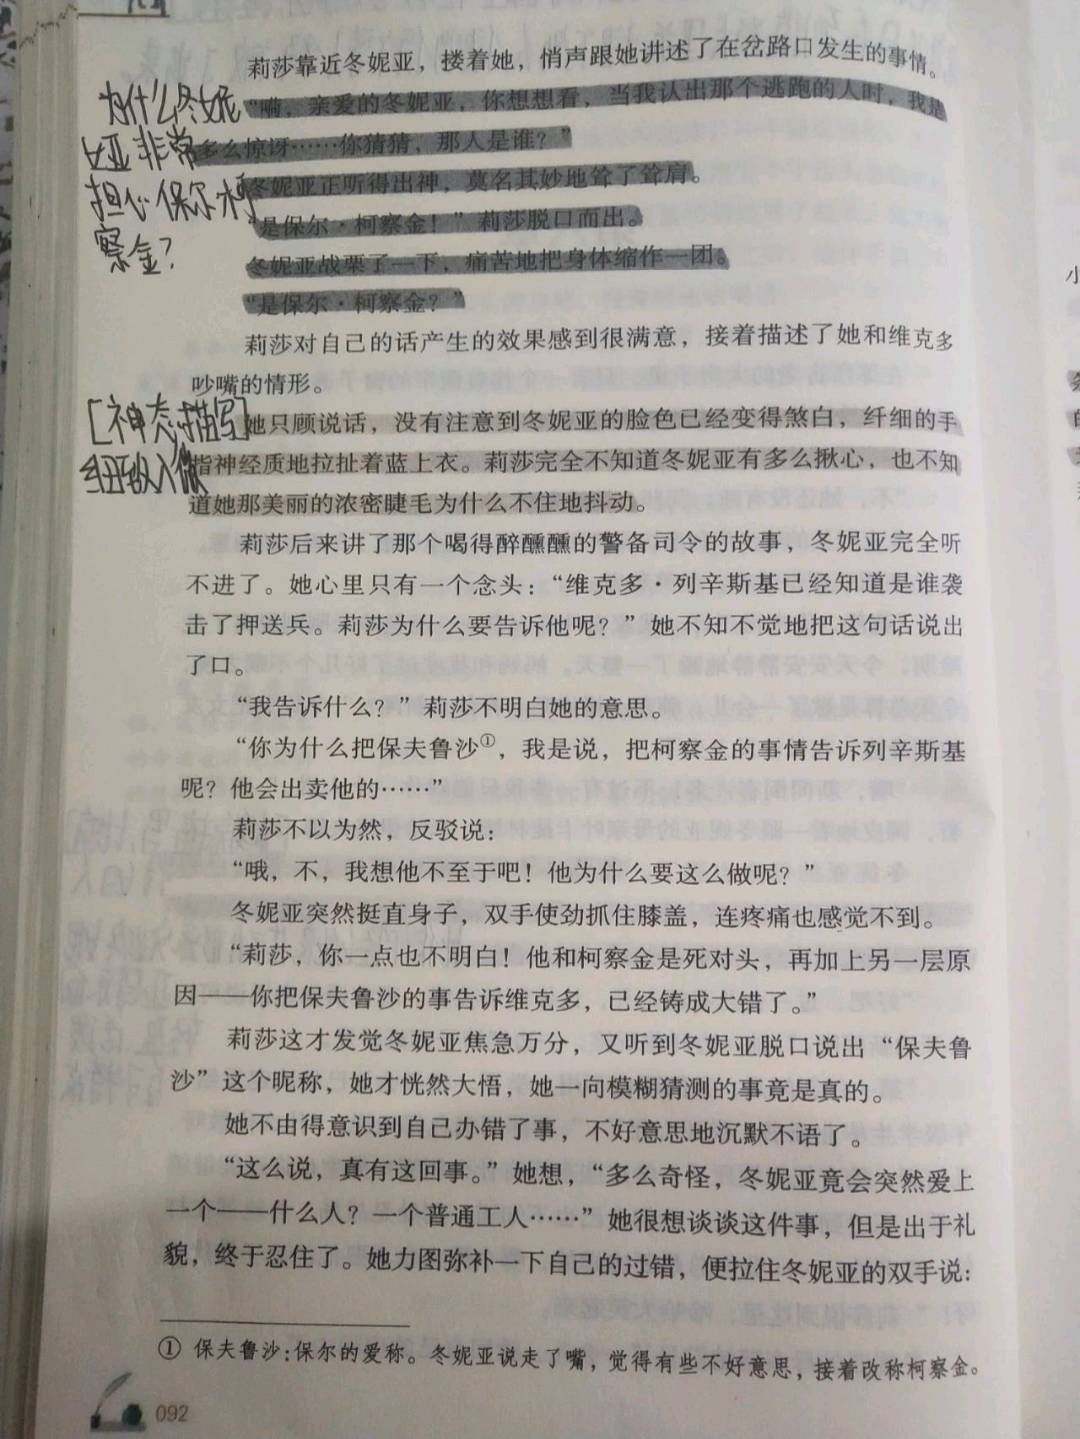 莉莎靠近冬妮亚，搂着她，悄声跟她讲述了在岔路口发生的事情。
为什么冬妮
娅非常
担心保尔柯
察金？
“嗬，亲爱的冬妮亚，你想想看，当我认出那个逃跑的人时，我是
多么惊讶……你猜猜，那人是谁？”
冬妮亚正听得出神，莫名其妙地耸了耸肩。
“是保尔·柯察金！”莉莎脱口而出。
冬妮亚战栗了一下，痛苦地把身体缩作一团。
“是保尔·柯察金？”
莉莎对自己的话产生的效果感到很满意，接着描述了她和维克多
吵嘴的情形。
[神态描写]
细致入微
她只顾说话，没有注意到冬妮亚的脸色已经变得煞白，纤细的手
指神经质地拉扯着蓝上衣。莉莎完全不知道冬妮亚有多么揪心，也不知
道她那美丽的浓密睫毛为什么不住地抖动。
莉莎后来讲了那个喝得醉醺醺的警备司令的故事，冬妮亚完全听
不进了。她心里只有一个念头：“维克多·列辛斯基已经知道是谁袭
击了押送兵。莉莎为什么要告诉他呢？”她不知不觉地把这句话说出
了口。
“我告诉什么？”莉莎不明白她的意思。
“你为什么把保夫鲁沙①，我是说，把柯察金的事情告诉列辛斯基
呢？他会出卖他的……”
莉莎不以为然，反驳说：
“哦，不，我想他不至于吧！他为什么要这么做呢？”
冬妮亚突然挺直身子，双手使劲抓住膝盖，连疼痛也感觉不到。
“莉莎，你一点也不明白！他和柯察金是死对头，再加上另一层原
因——你把保夫鲁沙的事告诉维克多，已经铸成大错了。”
莉莎这才发觉冬妮亚焦急万分，又听到冬妮亚脱口说出“保夫鲁
沙”这个昵称，她才恍然大悟，她一向模糊猜测的事竟是真的。
她不由得意识到自己办错了事，不好意思地沉默不语了。
“这么说，真有这回事。”她想，“多么奇怪，冬妮亚竟会突然爱上
一个——什么人？一个普通工人……”她很想谈谈这件事，但是出于礼
貌，终于忍住了。她力图弥补一下自己的过错，便拉住冬妮亚的双手说：
① 保夫鲁沙：保尔的爱称。冬妮亚说走了嘴，觉得有些不好意思，接着改称柯察金。
092